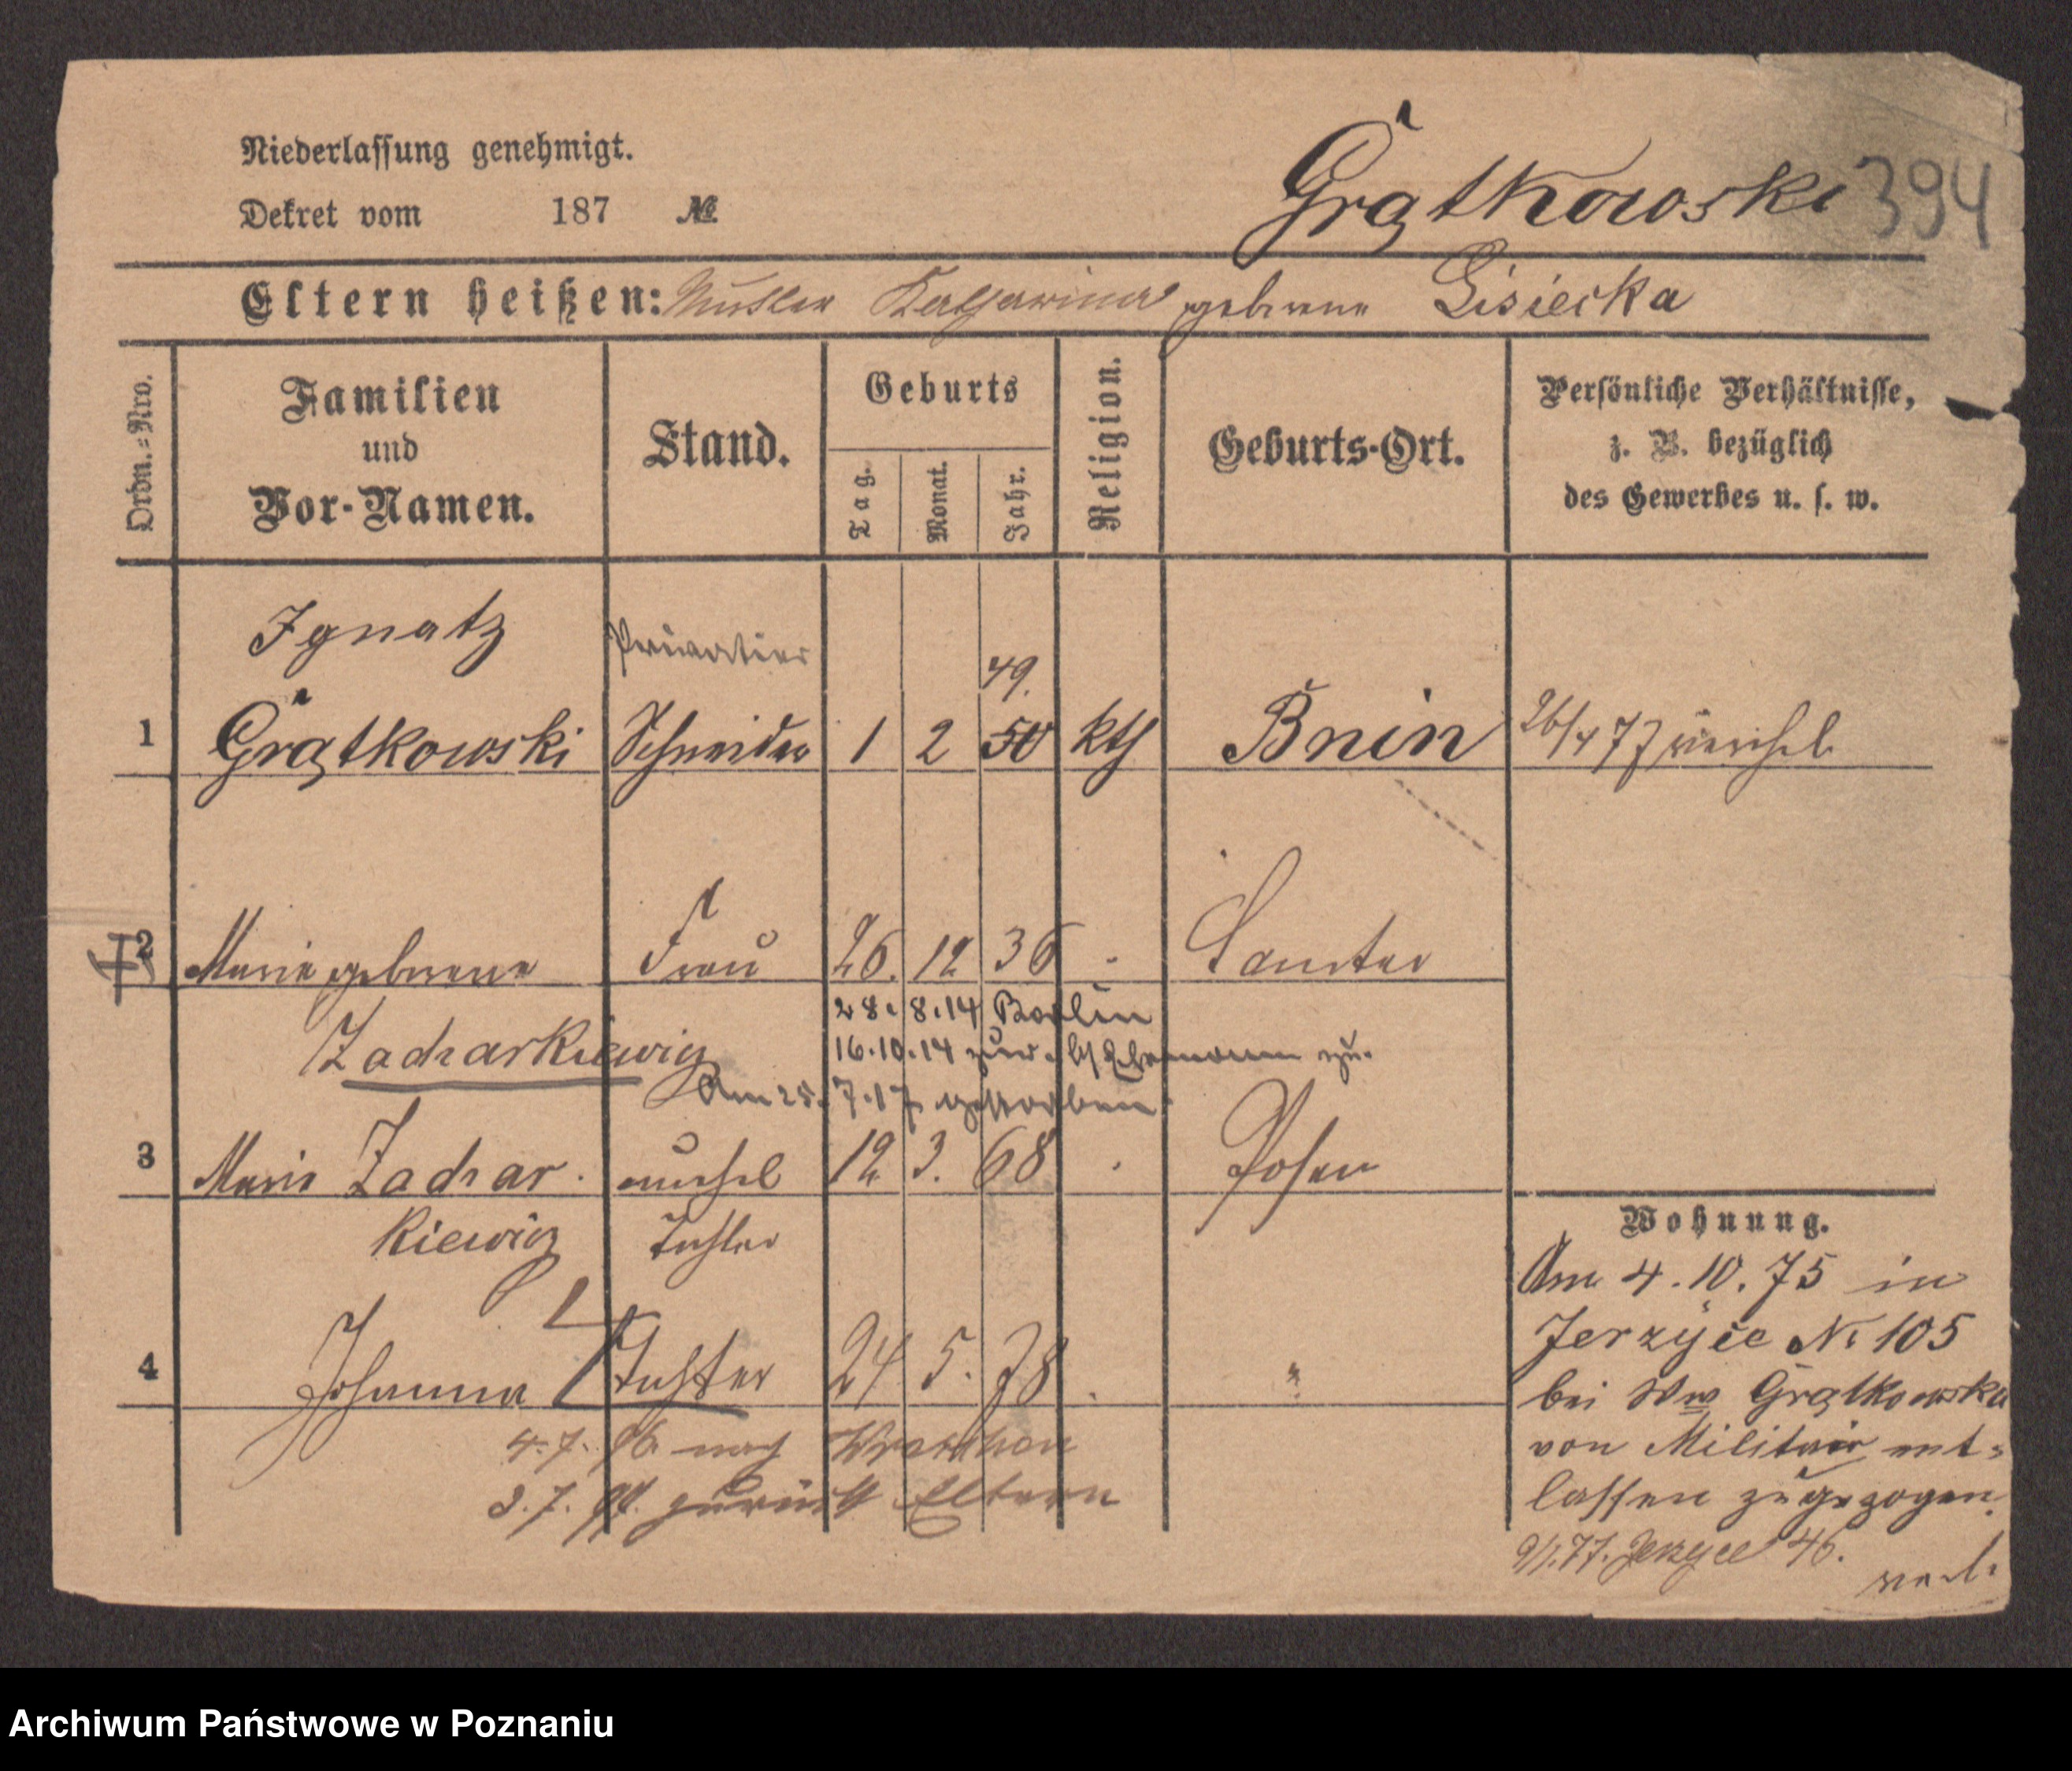 Niederlassung genehmigt.
Dekret vom 187 №
Grątkowski 394
Eltern heißen: Mutter Katharina geborene Lisiecka
Ordn.-Nro.
Familien
und
Vor-Namen.
Stand.
Geburts
Tag.
Monat.
Jahr.
Religion.
Geburts-Ort.
Persönliche Verhältnisse,
z. B. bezüglich
des Gewerbes u. s. w.
Ignatz
Privatier
49.
1 Grątkowski Schneider 1 2 50 kth Bnin 26/4 77
2 Marie geborene Frau 26. 12 36 Samter
Zacharkiewicz
28. 8. 14 Berlin
16.10.14 zur. Ehemann zu.
Am 25. 7. 17 gestorben
3 Marie Zachar. 12 3. 68 Posen
kiewicz Tochter
4 Johanna Tochter 24 5. 78 "
4. 7. 96 nach Wreschen
3. 7. 97. zurück Eltern
Wohnung.
Am 4. 10. 75 in
Jerzyce № 105
bei Ww Grątkowska
von Militair ent-
lassen zugezogen.
Jerzyce 46.
Archiwum Państwowe w Poznaniu